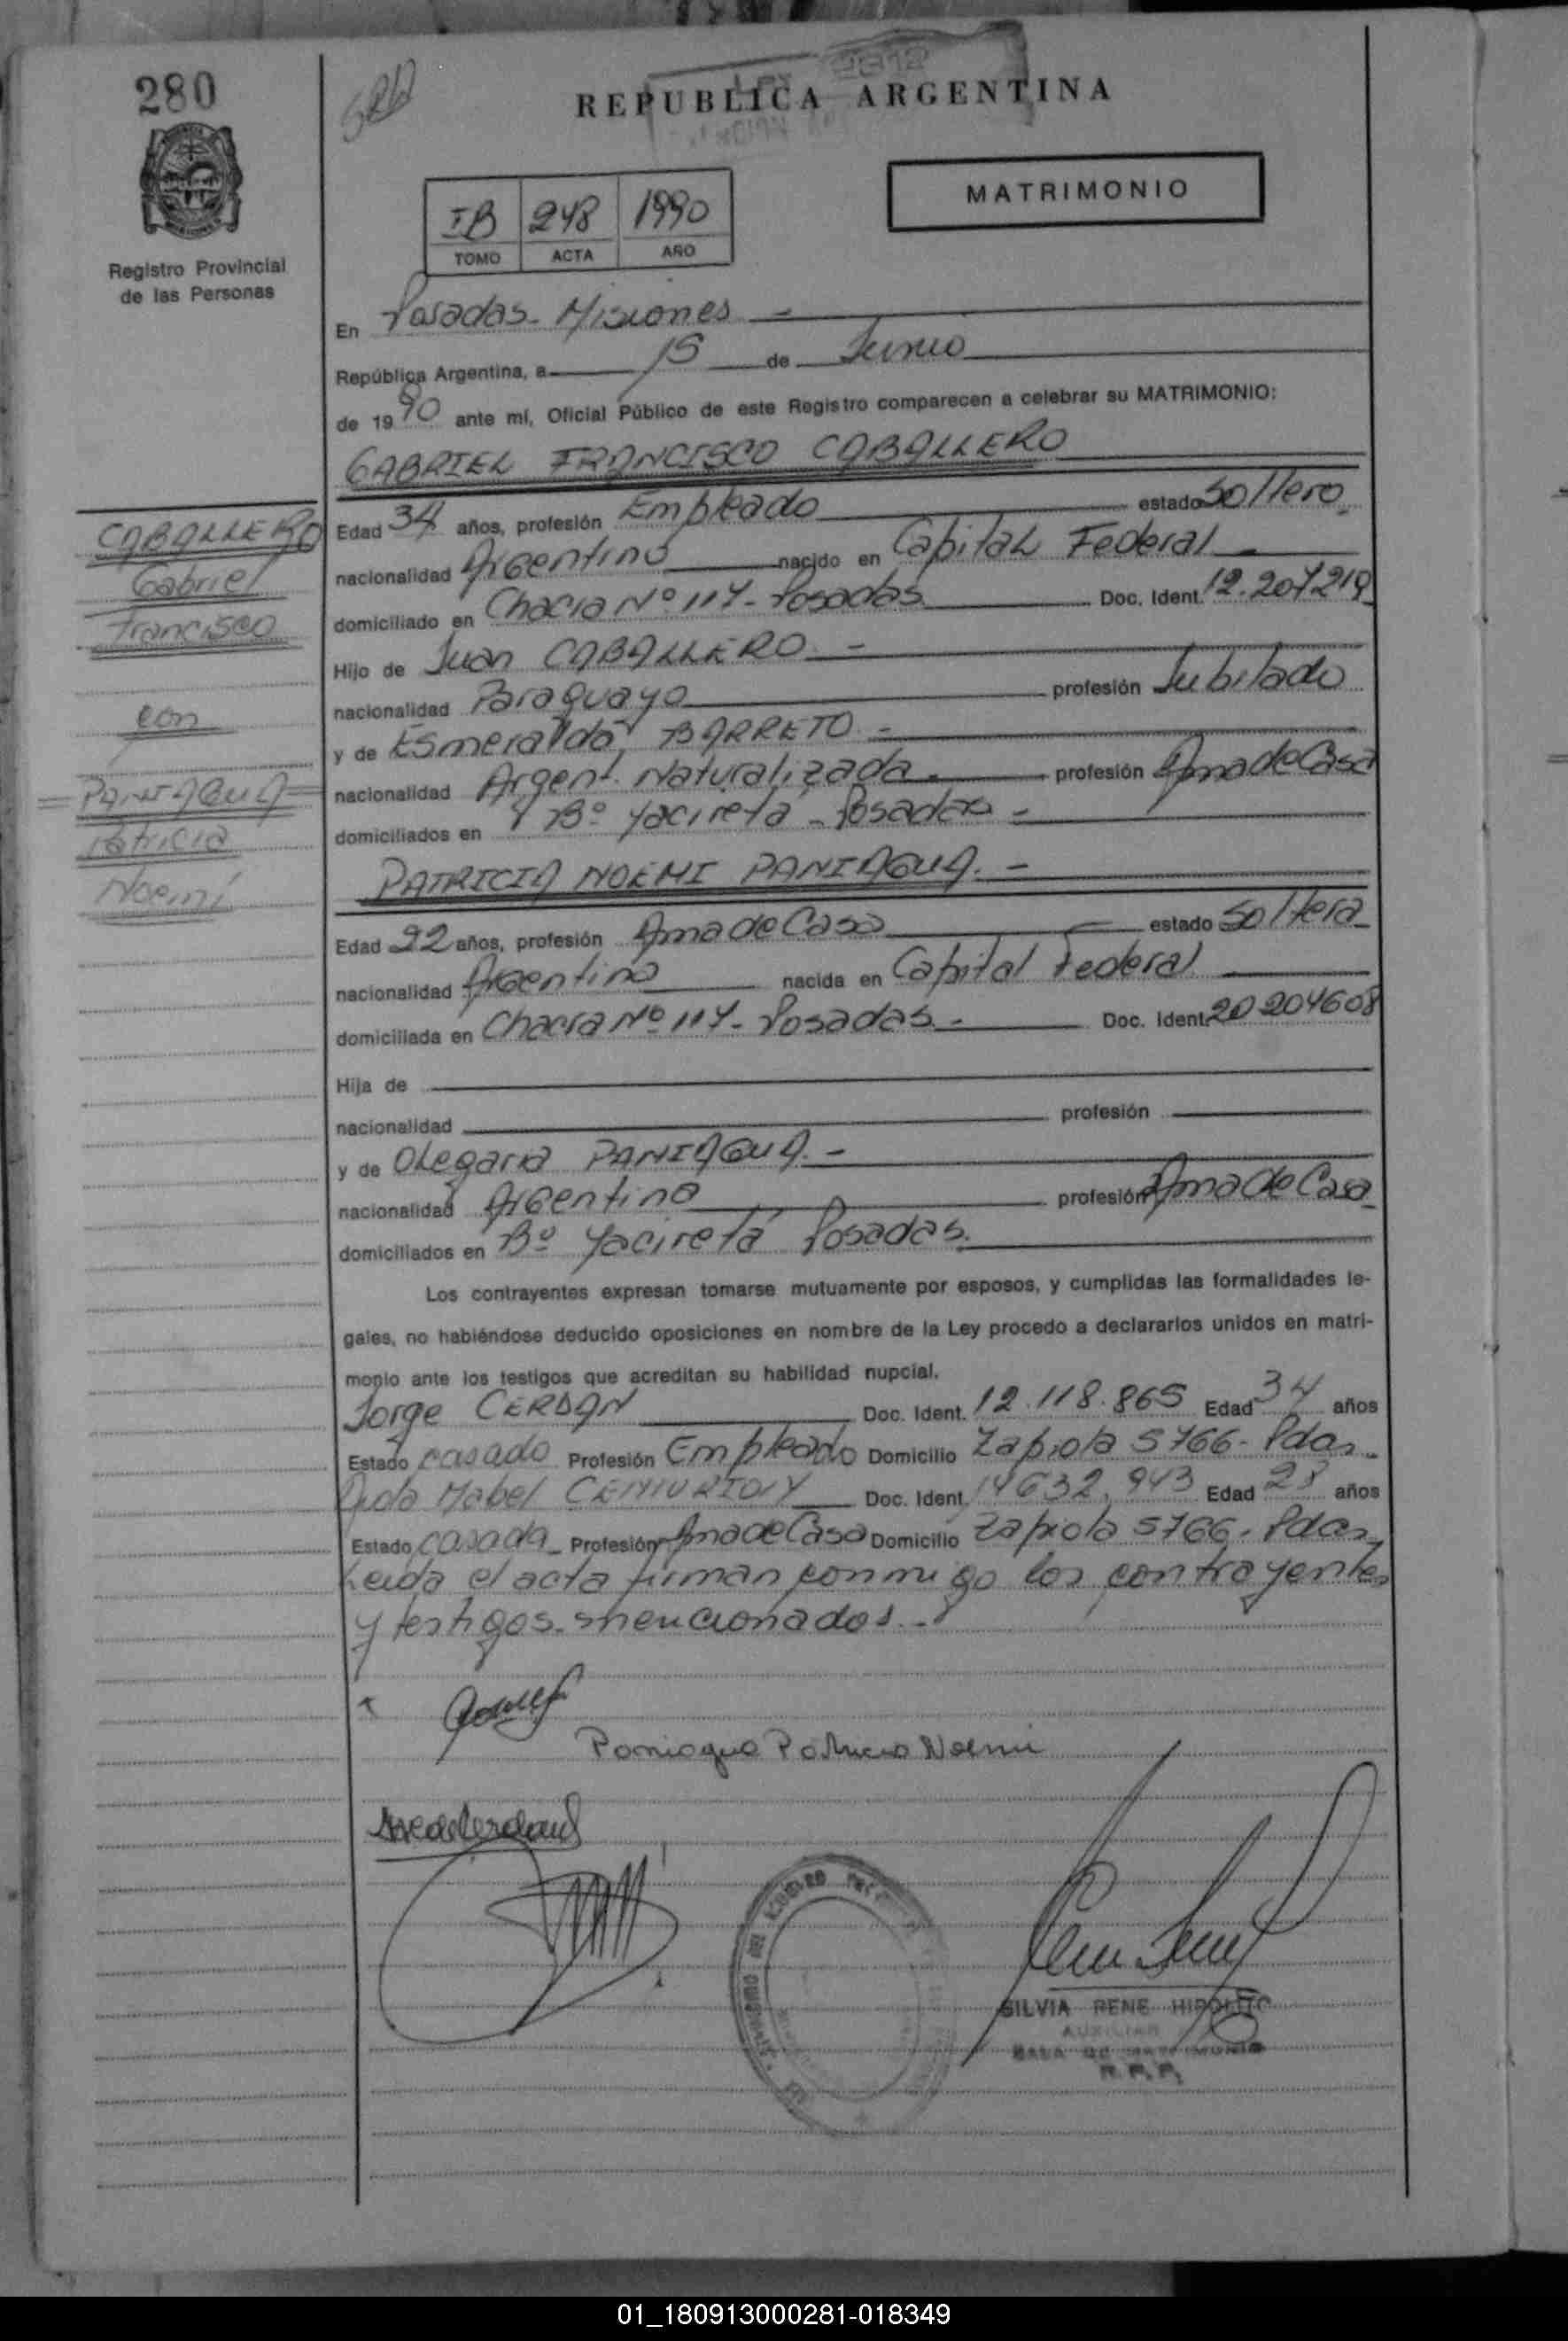 280
REPUBLICA ARGENTINA
Registro Provincial
de las Personas
IB 248 1990
TOMO ACTA AÑO
MATRIMONIO
En Posadas - Misiones -
República Argentina, a 15 de Junio
de 1990 ante mí, Oficial Público de este Registro comparecen a celebrar su MATRIMONIO:
GABRIEL FRANCISCO CABALLERO
Edad 34 años, profesión Empleado estado Soltero
nacionalidad Argentino nacido en Capital Federal -
domiciliado en Chacra Nº 117 - Posadas Doc. Ident. 12.207219
Hijo de Juan CABALLERO. -
nacionalidad Paraguayo profesión Jubilado
y de Esmeralda BARRETO. -
nacionalidad Argent. Naturalizada. profesión Ama de Casa
domiciliados en Bº Yacireta - Posadas -
PATRICIA NOEMI PANIAGUA. -
Edad 22 años, profesión Ama de Casa estado Soltera
nacionalidad Argentina nacida en Capital Federal
domiciliada en Chacra Nº 117 - Posadas - Doc. Ident. 20204608
Hija de
nacionalidad profesión
y de Olegaria PANIAGUA. -
nacionalidad Argentina profesión Ama de Casa
domiciliados en Bº Yacireta Posadas.
Los contrayentes expresan tomarse mutuamente por esposos, y cumplidas las formalidades le-
gales, no habiéndose deducido oposiciones en nombre de la Ley procedo a declararlos unidos en matri-
monio ante los testigos que acreditan su habilidad nupcial.
Jorge CERDAN Doc. Ident. 12.118.865 Edad 34 años
Estado casado Profesión Empleado Domicilio Zapiola 5766 - Pdas.
Aida Mabel CENTURION Doc. Ident. 14632.943 Edad 28 años
Estado casada Profesión Ama de Casa Domicilio Zapiola 5766. Pdas.
Leida el acta firman conmigo los contrayentes
y testigos mencionados. -
CABALLERO
Gabriel
Francisco
con
PANIAGUA
Patricia
Noemí
Paniagua Patricia Noemi
SILVIA RENE HIPOLITO
AUXILIAR
SALA DE MATRIMONIO
R. P. P.
01_180913000281-018349